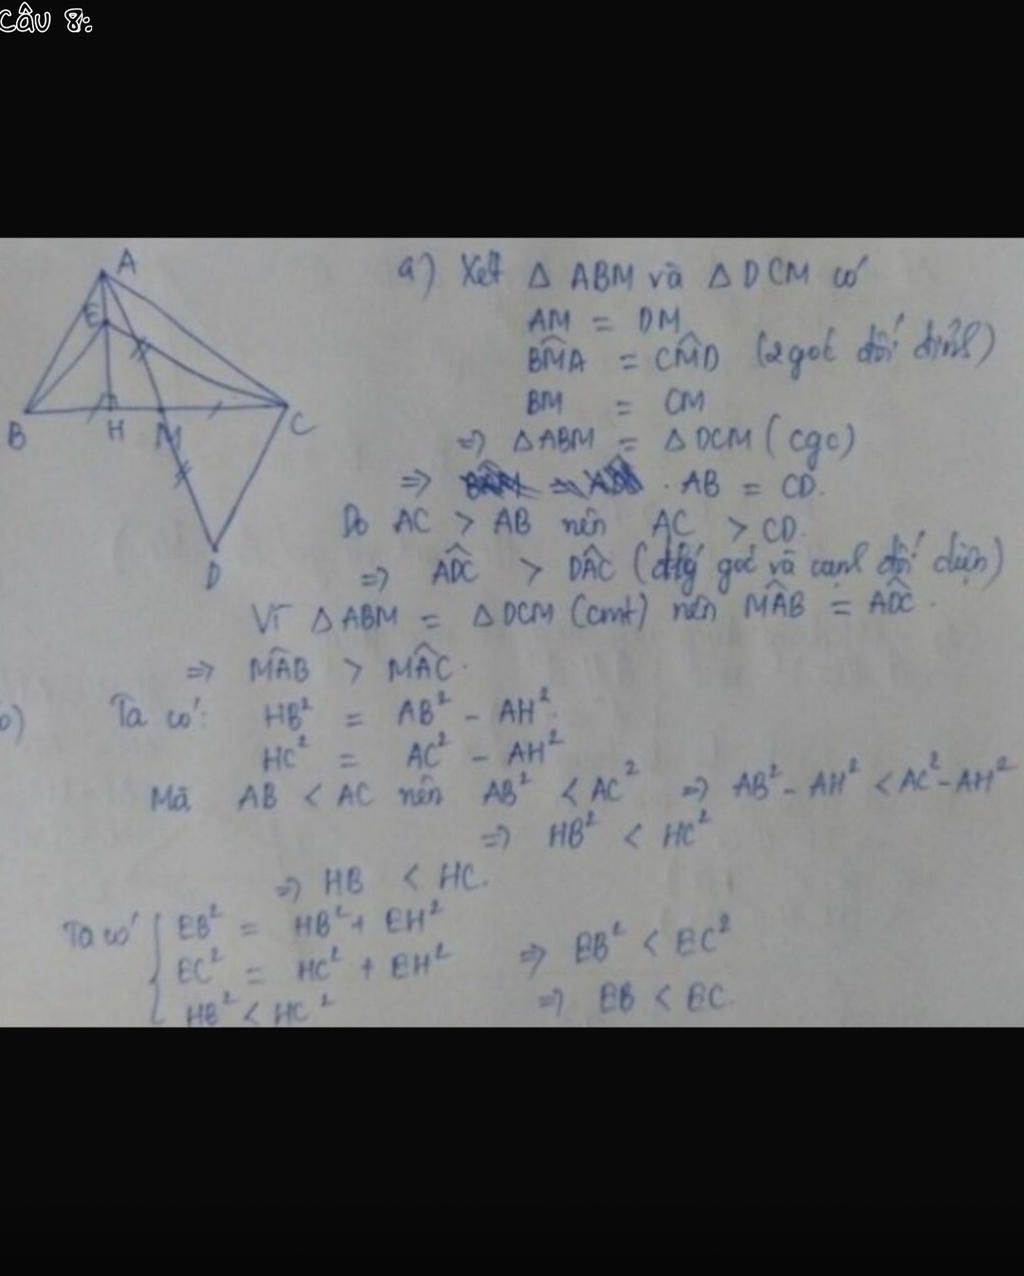 Câu 8:
A
E
B H M C
D
a) Xét △ ABM và △ DCM có
AM = DM
BM̂A = CM̂D (2 góc đối đỉnh)
BM = CM
=> △ABM = △DCM (cgc)
=> AB = CD.
Do AC > AB nên AC > CD.
=> AD̂C > DÂC (đlý góc và cạnh đối diện)
Vì △ABM = △DCM (cmt) nên MÂB = AD̂C.
=> MÂB > MÂC.
b) Ta có: HB² = AB² - AH²
HC² = AC² - AH²
Mà AB < AC nên AB² < AC² => AB² - AH² < AC² - AH²
=> HB² < HC²
=> HB < HC.
Ta có { EB² = HB² + EH²
EC² = HC² + EH² => EB² < EC²
HB² < HC² => EB < EC.